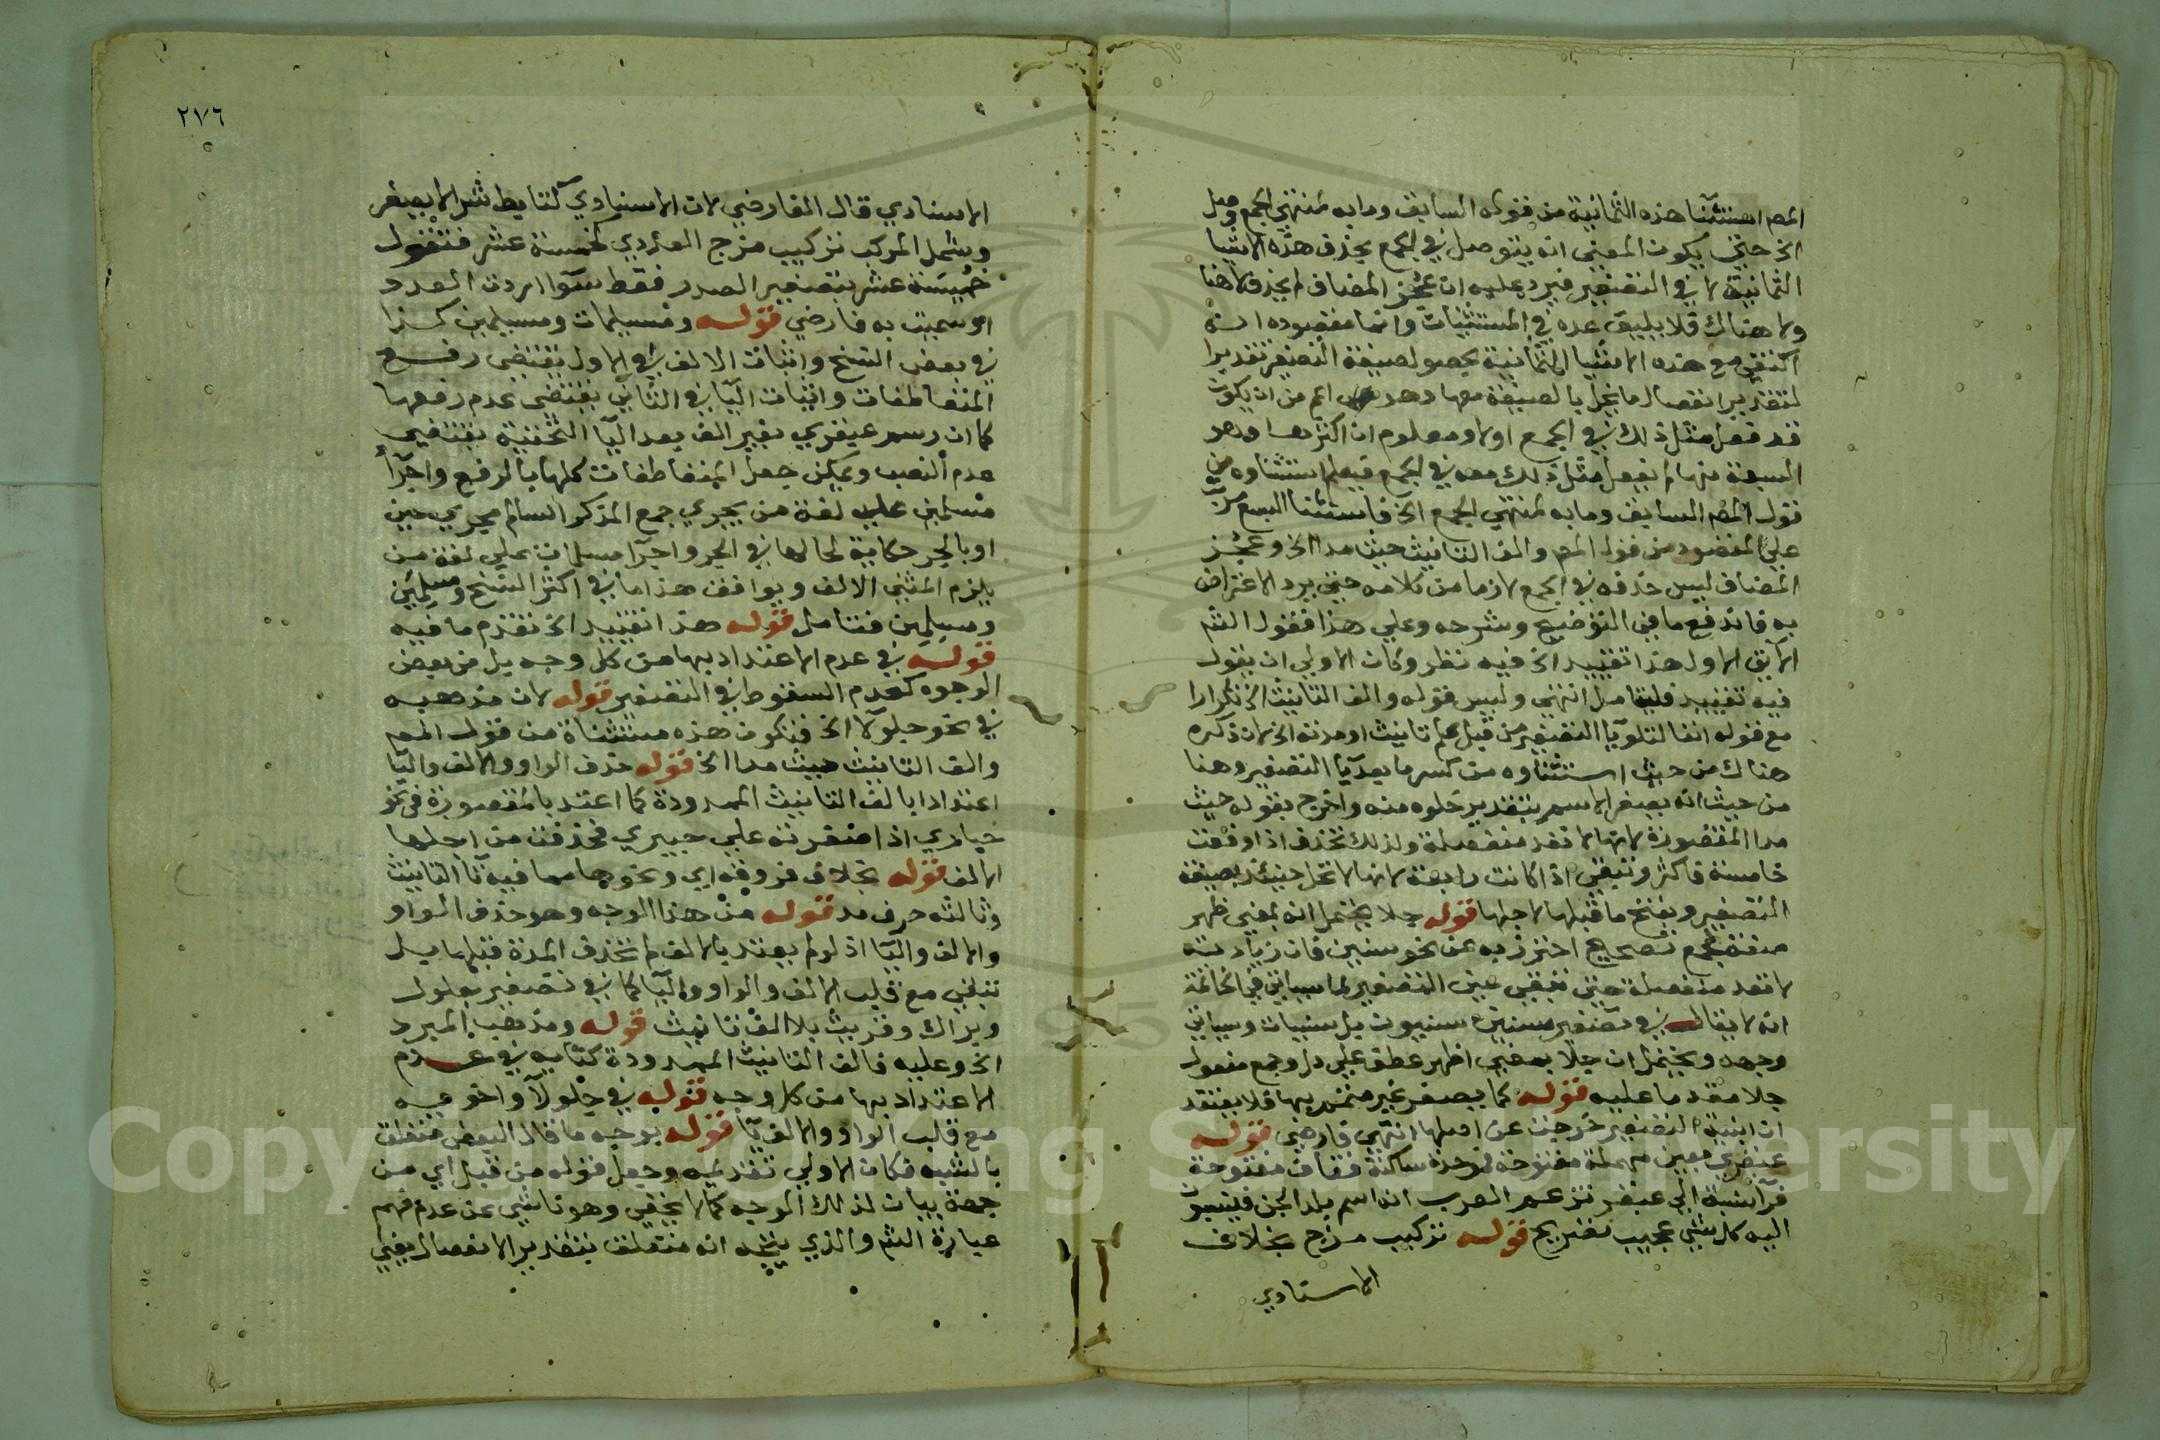 المص استثنا هذه الثمانية من قوله السابق وما به لمنتهى الجمع وصل
الخ حتى يكون المعنى انه يتوصل في الجمع بحذف هذه الاشيا
الثمانية لا في التصغير فيرد عليه ان عجز المضاف لم يحذف لا هنا
ولا هناك فلا يليق عده في المستثنيات وانما مقصوده انه
اكتفى مع هذه الاشيا الثمانية بحصول صيغة التصغير تقديرا
لتقدير انفصال ما يخل بالصيغة معها وهو اعم من ان يكون
قد فعل مثل ذلك في الجمع اولا ومعلوم ان اكثرها وهو
السبعة منها لم يفعل مثل ذلك معه في الجمع فيعلم استثناوه من
قول المص السابق وما به لمنتهى الجمع الخ فاستثنا السبع مرتب
على المقصود من قول المص والف التانيث حيث مدا الخ وعجز
المضاف ليس حذفه في الجمع لازما من كلامه حتى يرد الاعتراض
به فاندفع ما في التوضيح وشرحه وعلى هذا فقول الشم
الاتي الاول هذا تقييد الخ فيه نظر وكان الاولى ان يقول
فيه تقييد فليتامل انتهى وليس قوله والف التانيث الخ تكرارا
مع قوله انفا لتلو يا التصغير من قبل علم تانيث او مدته الخ لان ذكره
هناك من حيث استثناوه من كسر ما بعد يا التصغير وهنا
من حيث انه يصغر الاسم بتقدير خلوه منه واخرج بقوله حيث
مدا المقصورة لانها لا تعد منفصلة ولذلك تحذف اذا وقعت
خامسة فاكثر وتبقى اذا كانت رابعة لانها لا تخل حينئذ بصيغة
التصغير ويفتح ما قبلها لاجلها قوله جلا يحتمل انه بمعنى ظهر
صفة لجمع تصحيح احترز به عن نحو سنين فان زيادته
لا تعد منفصلة حتى تبقى حين التصغير لما سياتي في الخاتمة
انه لا يقال في تصغير سنين سنيون بل سنيات وسياتي
وجهه ويحتمل ان جلا بمعنى اظهر عطف على دل وجمع مفعول
جلا مقدما عليه قوله كما يصغر غير متمم بها فلا يعتقد
ان ابنية التصغير خرجت عن اصلها انتهى فارضي قوله
عبقري بعين مهملة مفتوحة فموحدة ساكنة فقاف مفتوحة
فرا نسبة الى عبقر تزعم العرب انه اسم بلد الجن فينسبون
اليه كل شي عجيب تصريح قوله تركيب مزج بخلاف
الاسنادي
٢٧٦
الاسنادي قال الفارضي لان الاسنادي كتابط شرا لا يصغر
وشمل المركب تركيب مزج العددي كخمسة عشر فتقول
خميسة عشر بتصغير الصدر فقط سوا اردت العدد
او سميت به فارضي قوله ومسيلمات ومسيلمين كذا
في بعض النسخ واثبات الالف في الاول يقتضي رفع
المتعاطفات واثبات اليا في الثاني يقتضي عدم رفعها
كما ان رسم عبقري بغير الف بعد اليا التحتية يقتضي
عدم النصب ويمكن جعل المتعاطفات كلها بالرفع واجرا
مسلمين على لغة من يجري جمع المذكر السالم مجرى حين
او بالجر حكاية لحالها في الجر واجرا مسلمان على لغة من
يلزم المثنى الالف ويوافق هذا ما في اكثر النسخ ومسيلمين
ومسيلمين فتامل قوله هذا تقييد الخ تقدم ما فيه
قوله في عدم الاعتداد بها من كل وجه بل من بعض
الوجوه كعدم السقوط في التصغير قوله لان مذهبه
في نحو جلولا الخ فتكون هذه مستثناة من قول المص
والف التانيث حيث مدا الخ قوله حذف الواو والالف واليا
اعتدادا بالف التانيث الممدودة كما اعتد بالمقصورة في نحو
حبارى اذا صغرته على حبيرى فحذفت من اجلها
الالف قوله بخلاف فروقة اي ونحوها مما فيه تا التانيث
وثالثه حرف مد قوله من هذا الوجه وهو حذف الواو
والالف واليا اذ لو لم يعتد بالالف لم تحذف المدة قبلها بل
تبقى مع قلب الالف والواو واليا كما في تصغير بهلول
وبراك وقريث بلا الف تانيث قوله ومذهب المبرد
الخ وعليه فالف التانيث الممدودة كتايه في عدم
الاعتداد بها من كل وجه قوله في جلولا واخويه
مع قلب الواو والالف يا قوله بوجه ما قال البعض متعلق
بالشبه فكان الاولى تقديمه وجعل قوله من قبل اي من
جهة بيان لذلك الوجه كما لا يخفى وهو ناشي عن عدم فهم
عبارة الشم والذي يتجه انه متعلق بتقدير الانفصال يعني
Copyright © King Saud University